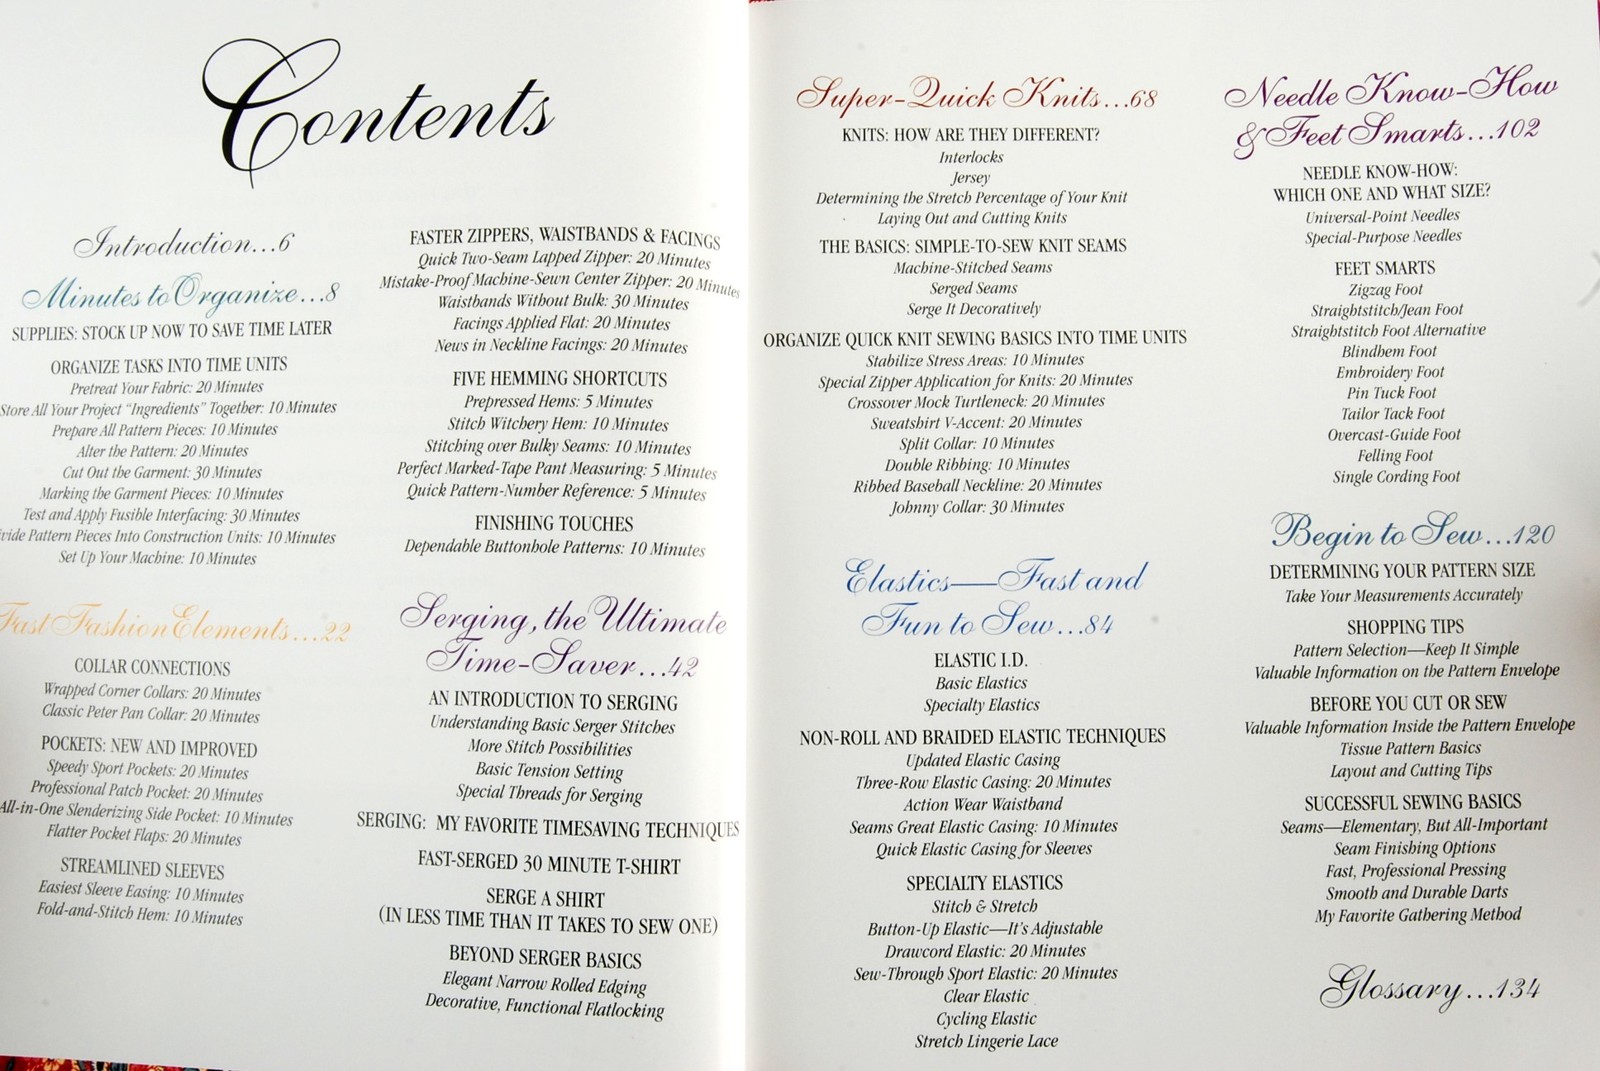 Contents
Introduction...6
Minutes to Organize...8
SUPPLIES: STOCK UP NOW TO SAVE TIME LATER
ORGANIZE TASKS INTO TIME UNITS
Pretreat Your Fabric: 20 Minutes
Store All Your Project "Ingredients" Together: 10 Minutes
Prepare All Pattern Pieces: 10 Minutes
Alter the Pattern: 20 Minutes
Cut Out the Garment: 30 Minutes
Marking the Garment Pieces: 10 Minutes
Test and Apply Fusible Interfacing: 30 Minutes
Pattern Pieces Into Construction Units: 10 Minutes
Set Up Your Machine: 10 Minutes
Fast Fashion Elements...22
COLLAR CONNECTIONS
Wrapped Corner Collars: 20 Minutes
Classic Peter Pan Collar: 20 Minutes
POCKETS: NEW AND IMPROVED
Speedy Sport Pockets: 20 Minutes
Professional Patch Pocket: 20 Minutes
All-in-One Slenderizing Side Pocket: 10 Minutes
Flatter Pocket Flaps: 20 Minutes
STREAMLINED SLEEVES
Easiest Sleeve Easing: 10 Minutes
Fold-and-Stitch Hem: 10 Minutes
FASTER ZIPPERS, WAISTBANDS & FACINGS
Quick Two-Seam Lapped Zipper: 20 Minutes
Mistake-Proof Machine-Sewn Center Zipper: 20 Minutes
Waistbands Without Bulk: 30 Minutes
Facings Applied Flat: 20 Minutes
News in Neckline Facings: 20 Minutes
FIVE HEMMING SHORTCUTS
Prepressed Hems: 5 Minutes
Stitch Witchery Hem: 10 Minutes
Stitching over Bulky Seams: 10 Minutes
Perfect Marked-Tape Pant Measuring: 5 Minutes
Quick Pattern-Number Reference: 5 Minutes
FINISHING TOUCHES
Dependable Buttonhole Patterns: 10 Minutes
Serging, the Ultimate
Time-Saver...42
AN INTRODUCTION TO SERGING
Understanding Basic Serger Stitches
More Stitch Possibilities
Basic Tension Setting
Special Threads for Serging
SERGING: MY FAVORITE TIMESAVING TECHNIQUES
FAST-SERGED 30 MINUTE T-SHIRT
SERGE A SHIRT
(IN LESS TIME THAN IT TAKES TO SEW ONE)
BEYOND SERGER BASICS
Elegant Narrow Rolled Edging
Decorative, Functional Flatlocking
Super-Quick Knits...68
KNITS: HOW ARE THEY DIFFERENT?
Interlocks
Jersey
Determining the Stretch Percentage of Your Knit
Laying Out and Cutting Knits
THE BASICS: SIMPLE-TO-SEW KNIT SEAMS
Machine-Stitched Seams
Serged Seams
Serge It Decoratively
ORGANIZE QUICK KNIT SEWING BASICS INTO TIME UNITS
Stabilize Stress Areas: 10 Minutes
Special Zipper Application for Knits: 20 Minutes
Crossover Mock Turtleneck: 20 Minutes
Sweatshirt V-Accent: 20 Minutes
Split Collar: 10 Minutes
Double Ribbing: 10 Minutes
Ribbed Baseball Neckline: 20 Minutes
Johnny Collar: 30 Minutes
Elastics—Fast and
Fun to Sew...84
ELASTIC I.D.
Basic Elastics
Specialty Elastics
NON-ROLL AND BRAIDED ELASTIC TECHNIQUES
Updated Elastic Casing
Three-Row Elastic Casing: 20 Minutes
Action Wear Waistband
Seams Great Elastic Casing: 10 Minutes
Quick Elastic Casing for Sleeves
SPECIALTY ELASTICS
Stitch & Stretch
Button-Up Elastic—It's Adjustable
Drawcord Elastic: 20 Minutes
Sew-Through Sport Elastic: 20 Minutes
Clear Elastic
Cycling Elastic
Stretch Lingerie Lace
Needle Know-How
& Feet Smarts...102
NEEDLE KNOW-HOW:
WHICH ONE AND WHAT SIZE?
Universal-Point Needles
Special-Purpose Needles
FEET SMARTS
Zigzag Foot
Straightstitch/Jean Foot
Straightstitch Foot Alternative
Blindhem Foot
Embroidery Foot
Pin Tuck Foot
Tailor Tack Foot
Overcast-Guide Foot
Felling Foot
Single Cording Foot
Begin to Sew...120
DETERMINING YOUR PATTERN SIZE
Take Your Measurements Accurately
SHOPPING TIPS
Pattern Selection—Keep It Simple
Valuable Information on the Pattern Envelope
BEFORE YOU CUT OR SEW
Valuable Information Inside the Pattern Envelope
Tissue Pattern Basics
Layout and Cutting Tips
SUCCESSFUL SEWING BASICS
Seams—Elementary, But All-Important
Seam Finishing Options
Fast, Professional Pressing
Smooth and Durable Darts
My Favorite Gathering Method
Glossary...134